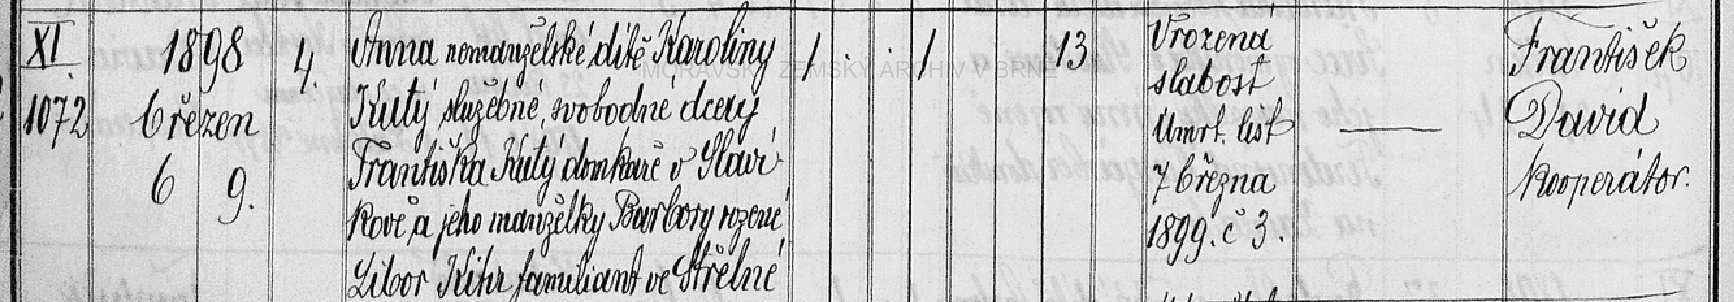 XI. 1898 4. Anna nemanželské dítě Karoliny 1 . . 1 13 Vrozená František
1072 březen Kutý služebné, svobodné dcery slabost David
6 9. Františka Kutý domkaře v Slaví Úmrt. list — kooperátor.
kově a jeho manželky Barbory rozené 7 března
Libor familiant ve Střelné 1899. č 3.
MORAVSKÝ ZEMSKÝ ARCHIV V BRNĚ